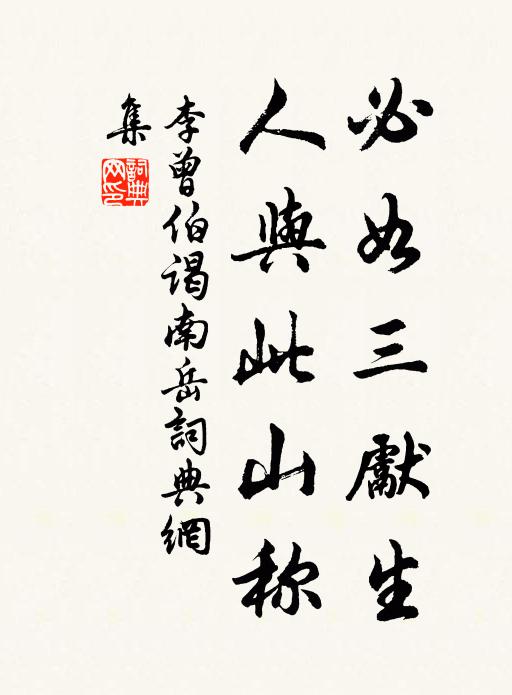 必如三獻生
人與此山称
李曾伯谒南岳詞典網
集
詞典网印